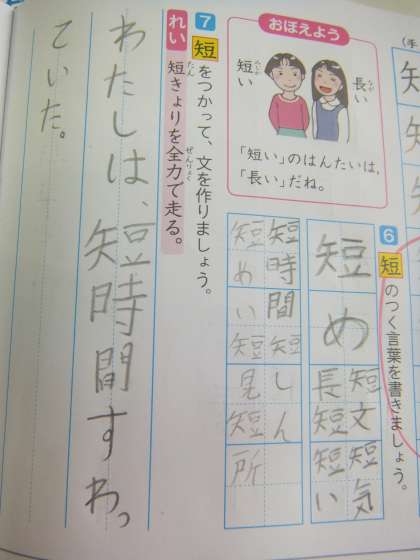 おぼえよう
長い
なが
短い
みじか
「短い」のはんたいは、
「長い」だね。
6 短のつく言葉を書きましょう。
短め
短文短気
長短短い
短時間短しん
短めい短見短所
7 短をつかって、文を作りましょう。
れい 短きょりを全力で走る。
たん ぜんりょく
わたしは、短時間すわっ
ていた。